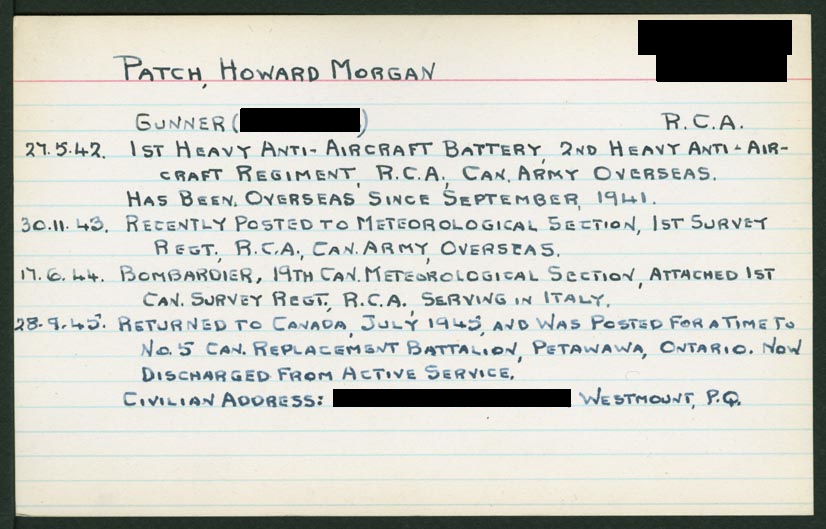 PATCH, HOWARD MORGAN
GUNNER ( ) R.C.A.
27.5.42. 1ST HEAVY ANTI-AIRCRAFT BATTERY, 2ND HEAVY ANTI-AIR-
CRAFT REGIMENT, R.C.A., CAN. ARMY OVERSEAS.
HAS BEEN OVERSEAS SINCE SEPTEMBER, 1941.
30.11.43. RECENTLY POSTED TO METEOROLOGICAL SECTION, 1ST SURVEY
REGT., R.C.A., CAN. ARMY, OVERSEAS.
17.6.44. BOMBARDIER, 19TH CAN. METEOROLOGICAL SECTION, ATTACHED 1ST
CAN. SURVEY REGT., R.C.A., SERVING IN ITALY.
28.9.45. RETURNED TO CANADA, JULY 1945, AND WAS POSTED FOR A TIME TO
NO. 5 CAN. REPLACEMENT BATTALION, PETAWAWA, ONTARIO. NOW
DISCHARGED FROM ACTIVE SERVICE.
CIVILIAN ADDRESS: WESTMOUNT, P.Q.